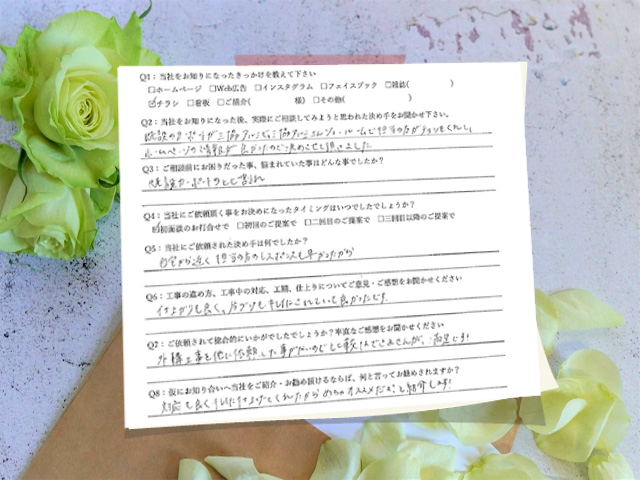 Q1：当社をお知りになったきっかけを教えて下さい
□ホームページ □Web広告 □インスタグラム □フェイスブック □雑誌( )
☑チラシ □看板 □ご紹介( 様) □その他( )
Q2：当社をお知りになった後、実際にご相談してみようと思われた決め手をお聞かせ下さい。
ホームページの情報が良かったので決めさせて頂きました
Q3：ご相談前にお困りだった事、悩まれていた事はどんな事でしたか？
既設カーポートの
Q4：当社にご依頼頂く事をお決めになったタイミングはいつでしたでしょうか？
☑初面談のお打合せで □初回のご提案で □二回目のご提案で □三回目以降のご提案で
Q5：当社にご依頼された決め手は何でしたか？
自宅から近く 担当の方のレスポンスも早かったから
Q6：工事の進め方、工事中の対応、工期、仕上りについてご意見・ご感想をお聞かせください
仕上がりも良く、片づけもキレイにされていて良かったです
Q7：ご依頼されて総合的にいかがでしたでしょうか？率直なご感想をお聞かせください
外構工事を他に依頼した事がないので比較はできませんが、満足です!
Q8：仮にお知り合いへ当社をご紹介・お勧め頂けるならば、何と言ってお勧めされますか？
対応も良くキレイに仕上げてくれたから めちゃオススメだよ と紹介します!